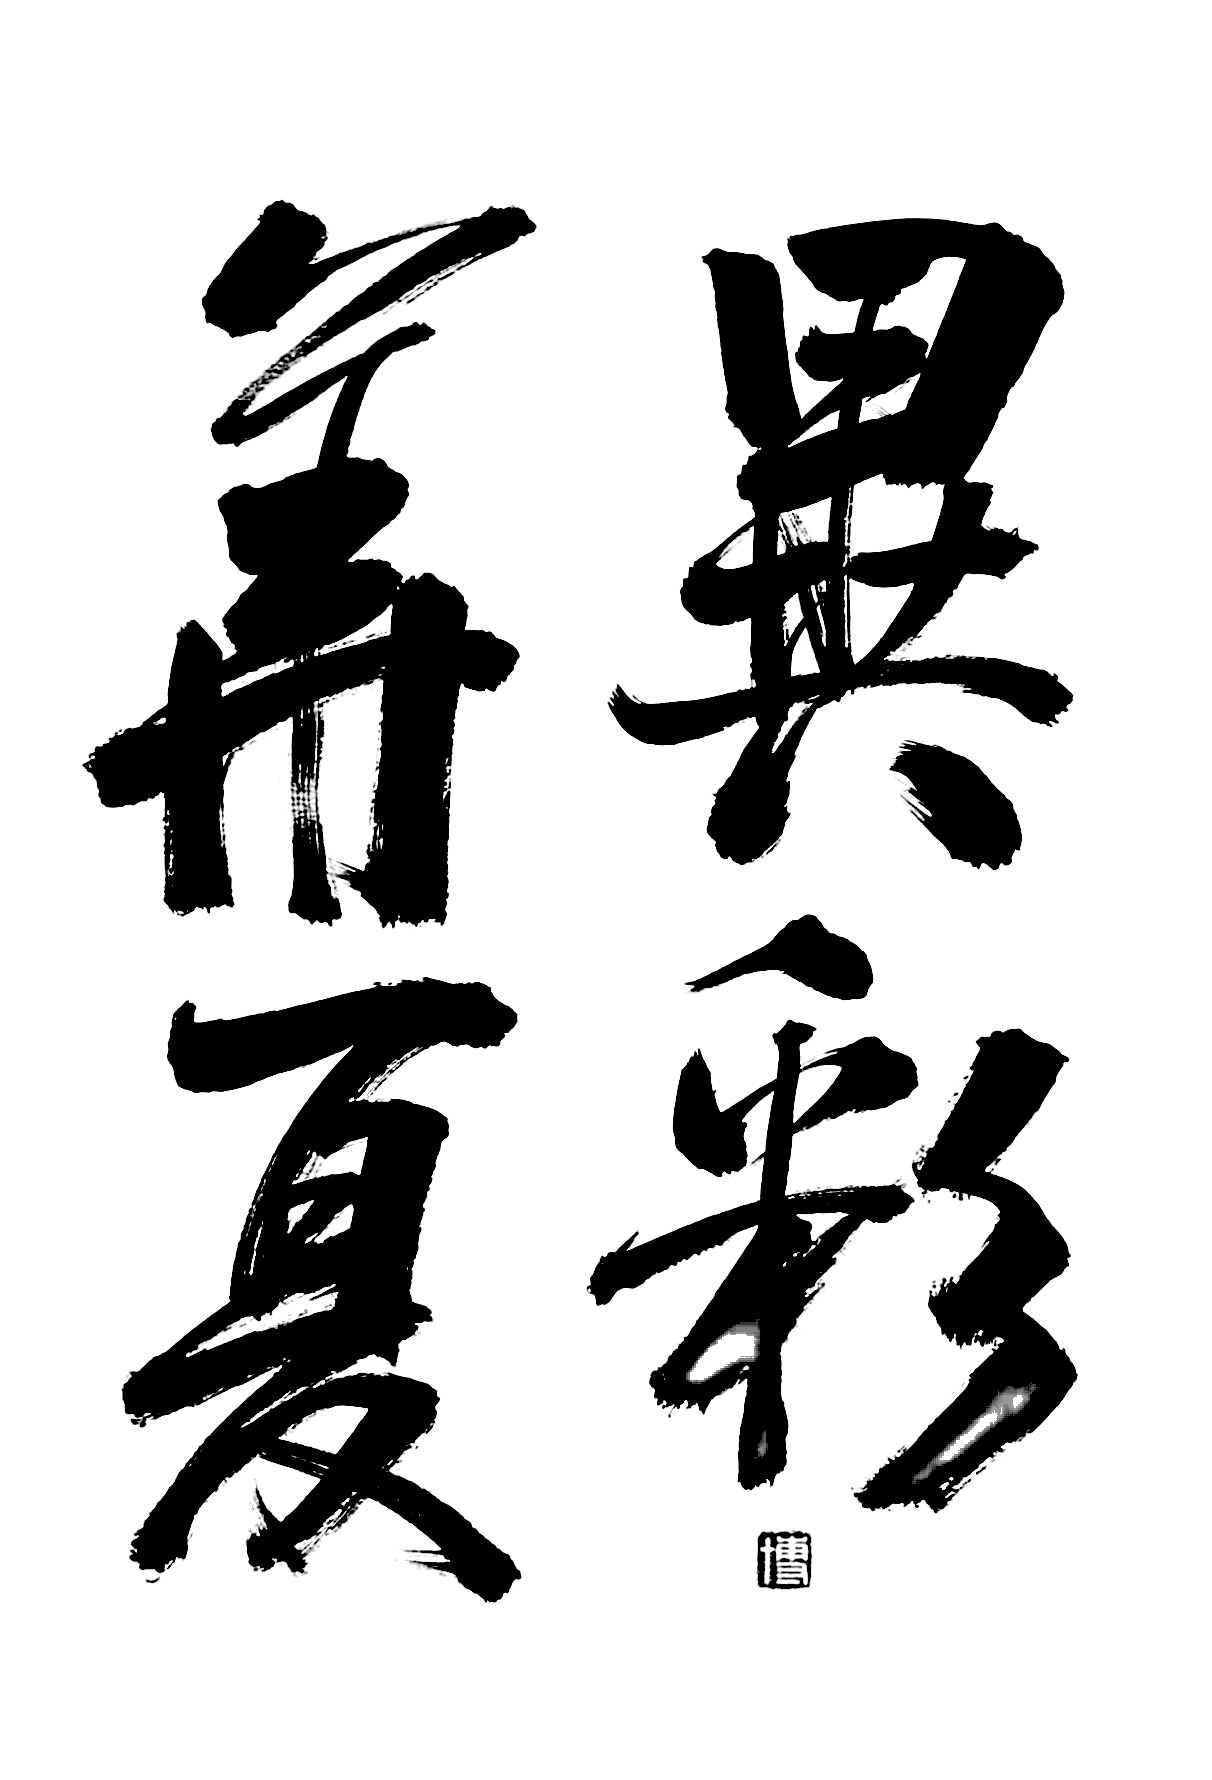 異彩
華夏
博